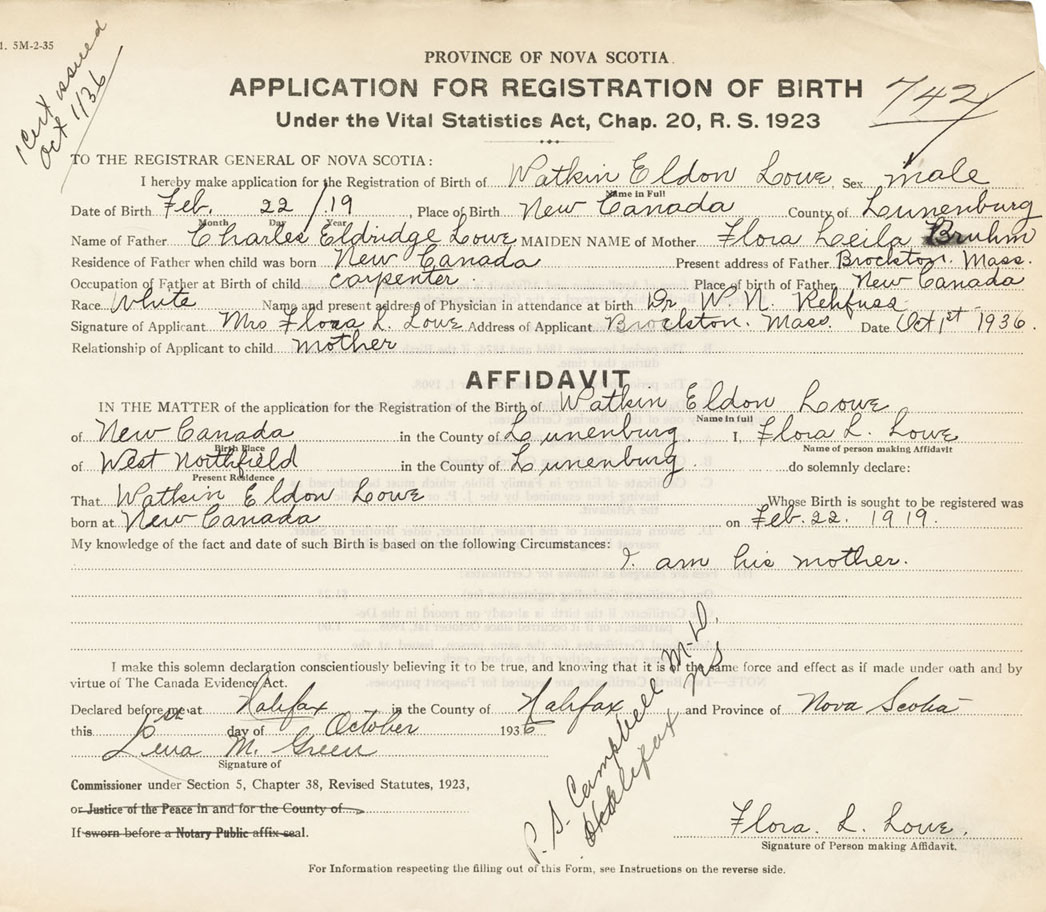 1. 5M-2-35
1 Cert issued
Oct 1/36
PROVINCE OF NOVA SCOTIA.
APPLICATION FOR REGISTRATION OF BIRTH
742
Under the Vital Statistics Act, Chap. 20, R. S. 1923
TO THE REGISTRAR GENERAL OF NOVA SCOTIA:
I hereby make application for the Registration of Birth of Watkin Eldon Lowe Sex male
Name in Full
Date of Birth Feb. 22 / 19, Place of Birth New Canada County of Lunenburg
Month Day Year
Name of Father Charles Eldridge Lowe MAIDEN NAME of Mother Flora Leila Bruhm
Residence of Father when child was born New Canada Present address of Father Brockton. Mass.
Occupation of Father at Birth of child carpenter Place of birth of Father New Canada
Race White Name and present address of Physician in attendance at birth Dr W. N. Rehfuss
Signature of Applicant Mrs Flora L. Lowe Address of Applicant Brockton. Mass. Date Oct 1st 1936.
Relationship of Applicant to child mother
AFFIDAVIT
IN THE MATTER of the application for the Registration of the Birth of Watkin Eldon Lowe
Name in full
of New Canada in the County of Lunenburg. I, Flora L. Lowe
Birth Place Name of person making Affidavit
of West Northfield in the County of Lunenburg. do solemnly declare:
Present Residence
That Watkin Eldon Lowe Whose Birth is sought to be registered was
born at New Canada on Feb. 22. 1919.
My knowledge of the fact and date of such Birth is based on the following Circumstances:
I am his mother.
I make this solemn declaration conscientiously believing it to be true, and knowing that it is of the same force and effect as if made under oath and by
virtue of The Canada Evidence Act.
Declared before me at Halifax in the County of Halifax and Province of Nova Scotia
this 1st day of October 1936
Lena M. Green
Signature of
P. S. Campbell M.D.
Halifax NS
Commissioner under Section 5, Chapter 38, Revised Statutes, 1923,
or Justice of the Peace in and for the County of
If sworn before a Notary Public affix seal.
Flora. L. Lowe.
Signature of Person making Affidavit.
For Information respecting the filling out of this Form, see Instructions on the reverse side.